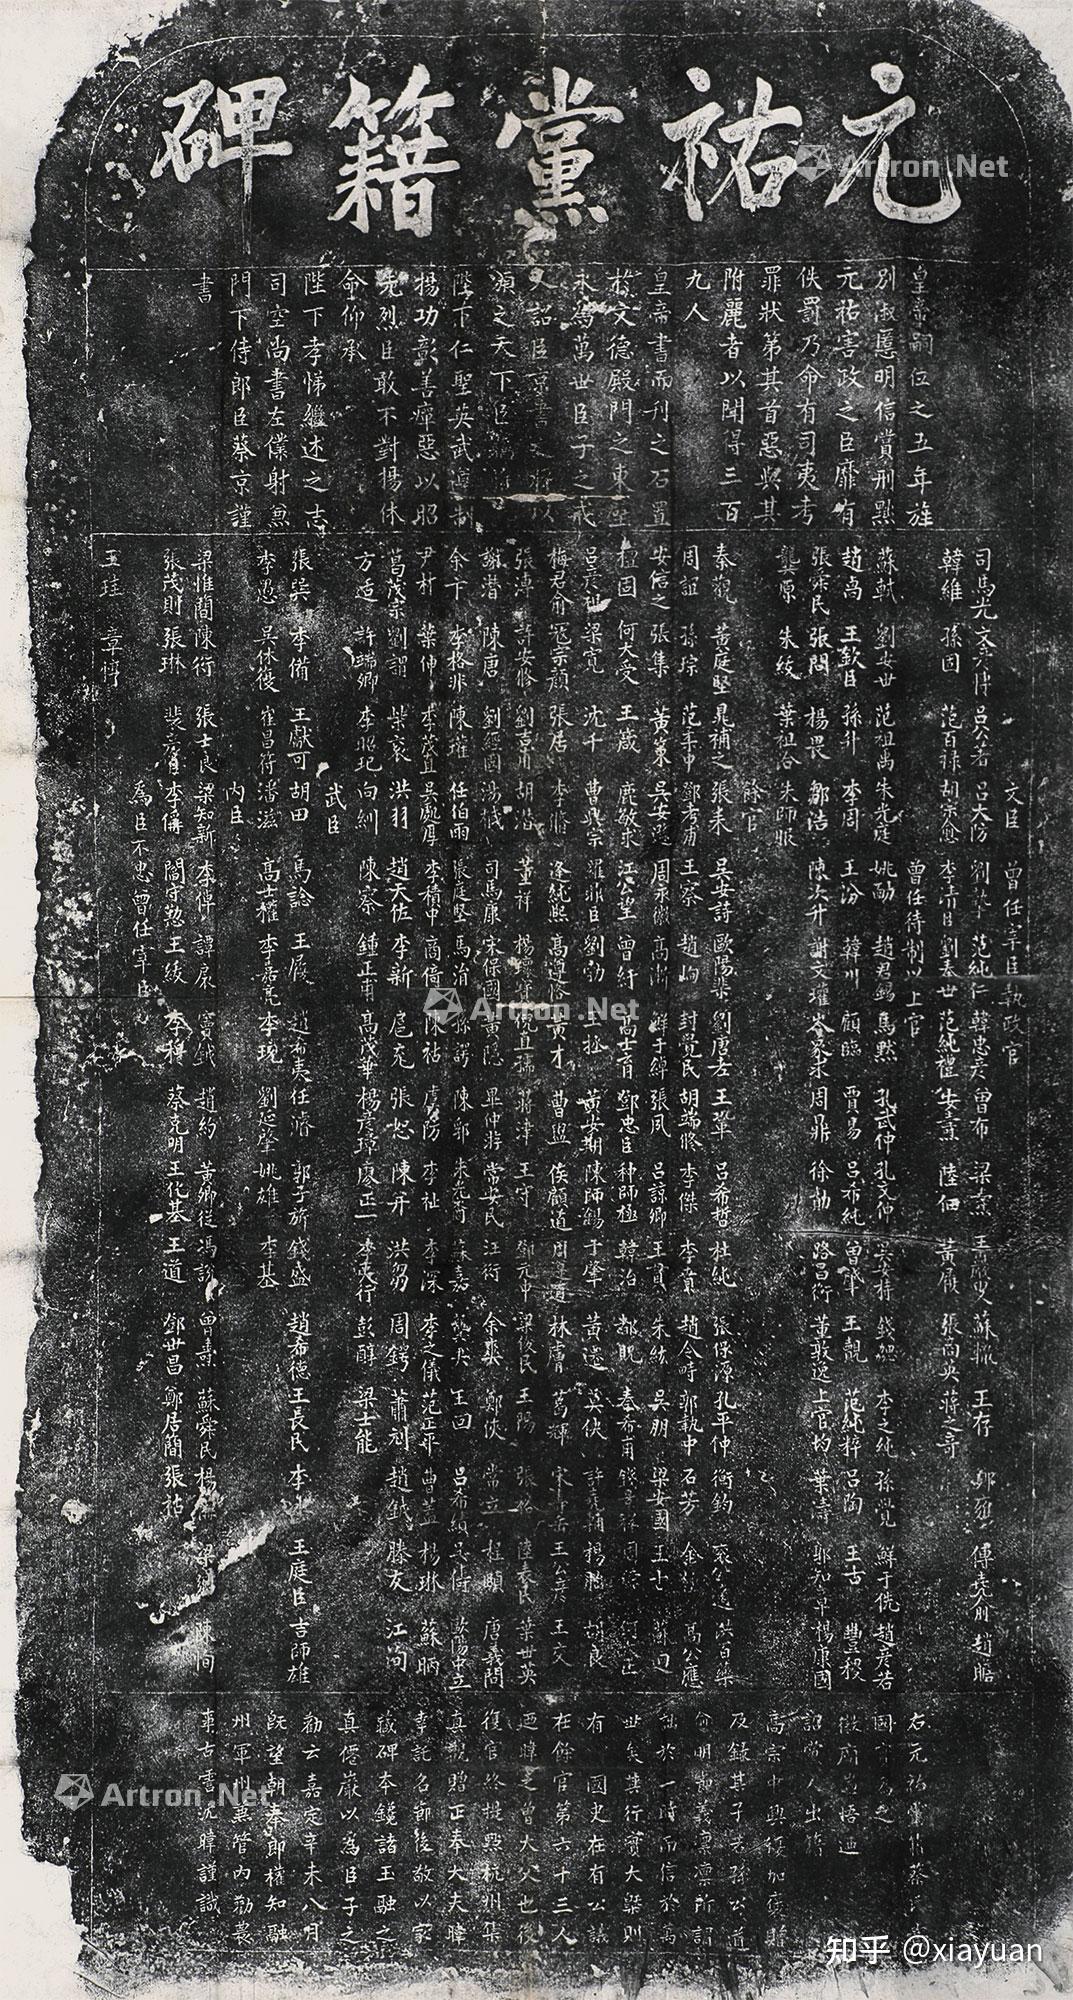 元祐黨籍碑
皇帝嗣位之五年旌
別淑慝明信賞刑黜
元祐害政之臣靡有
佚罰乃命有司夷考
罪狀第其首惡與其
附麗者以聞得三百
九人
皇帝書而刊之石置
於文德殿門之東壁
永為萬世臣子之戒
又詔臣京書之將以
頒之天下臣竊
陛下仁聖英武遵制
揚功彰善癉惡以昭
先烈臣敢不對揚休
命仰承
陛下孝悌繼述之志
司空尚書左僕射兼
門下侍郎臣蔡京謹
書
文臣 曾任宰臣執政官
司馬光 文彥博 呂公著 呂大防 劉摯 范純仁 韓忠彥 曾布 梁燾 王巖叟 蘇轍 王存 鄭雍 傅堯俞 趙瞻
韓維 孫固 范百祿 胡宗愈 李清臣 劉奉世 范純禮 安燾 陸佃 黃履 張商英 蔣之奇
曾任待制以上官
蘇軾 劉安世 范祖禹 朱光庭 姚勔 趙君錫 馬默 孔武仲 孔文仲 吳安持 錢勰 李之純 孫覺 鮮于侁 趙彥若
趙卨 王欽臣 孫升 李周 王汾 韓川 顧臨 賈易 呂希純 曾肇 王覿 范純粹 呂陶 王古 豐稷
張舜民 張問 楊畏 鄒浩 陳次升 謝文瓘 岑象求 周鼎 徐勣 路昌衡 董敦逸 上官均 葉濤 郭知章 楊康國
龔原 朱紱 葉祖洽 朱師服
餘官
秦觀 黃庭堅 晁補之 張耒 吳安詩 歐陽棐 劉唐老 王鞏 呂希哲 杜純 張保源 孔平仲 衡鈞 兗公適 馮百藥
周誼 孫琮 范柔中 鄧考甫 王察 趙峋 封覺民 胡端修 李傑 李賁 趙令畤 郭執中 石芳 金極 高公應
安信之 張集 黃策 吳安遜 周永徽 高漸 鮮于綽 張夙 呂諒卿 王貫 朱紘 吳朋 梁安國 王古 蘇迥
檀固 何大受 王箴 鹿敏求 江公望 曾紆 高士育 鄧忠臣 种師極 韓治 都貺 秦希甫 錢景祥 周綍 何大正
呂彥祖 梁寬 沈千 曹興宗 羅鼎臣 劉勃 王拯 黃安期 陳師錫 于肇 黃遷 莫俠正 許堯輔 楊朏 胡良
梅君俞 寇宗顏 張居 李脩 逢純熙 高遵恪 黃才 曹盥 侯顧道 周遵道 林膚 葛輝 宋壽岳 王公彥 王交
張溥 許安修 劉吉甫 胡潛 董祥 揚瓌寶 倪直孺 蔣津 王守 鄧允中 梁俊民 王陽 張裕 陸表民 葉世英
謝潛 陳唐 劉經國 湯戫 司馬康 宋保國 黃隱 畢仲游 常安民 汪衍 余爽 鄭俠 常立 程頤 唐義問
余卞 李格非 陳瓘 任伯雨 張庭堅 馬涓 孫諤 陳郛 朱光裔 蘇嘉 龔夬 王回 呂希績 吳儔 歐陽中立
尹材 葉伸 李茂直 吳處厚 李積中 商倚 陳祐 虞防 李祉 李深 李之儀 范正平 曹蓋 楊琳 蘇昞
葛茂宗 劉謂 柴袞 洪羽 趙天佐 李新 扈充 張恕 陳并 洪芻 周鍔 蕭刓 趙鉞 滕友 江洵
方适 許端卿 李昭玘 向紃 陳察 鍾正甫 高茂華 楊彥璋 廖正一 李夷行 彭醇 梁士能
武臣
張巽 李備 王獻可 胡田 馬諗 王履 趙希夷 任濬 郭子旂 錢盛 趙希德 王長民 李永 王庭臣 吉師雄
李愚 吳休復 崔昌符 潘滋 高士權 李嘉亮 李珫 劉延肇 姚雄 李基
內臣
梁惟簡 陳衍 張士良 梁知新 李倬 譚扆 竇鉞 趙約 黃卿從 馮說 曾燾 蘇舜民 楊偁 梁弼 陳恂
張茂則 張琳 裴彥臣 李偁 閻守懃 王紱 李穆 蔡克明 王化基 王道 鄧世昌 鄭居簡 張祐
為臣不忠曾任宰臣
王珪 章惇
右元祐黨籍蔡氏
國
徽廟追悟迺
詔黨人出籍
高宗中興復加褒贈
及錄其子若孫公道
愈明節義凜凜所謂
詘於一時而信於萬
世矣其行實大槩則
有 國史在有公議
在餘官第六十三人
迺暐之曾大父也後
復官終提點杭州集
真觀贈正奉大夫暐
幸託名節後敬以家
藏碑本鐫諸玉融之
真僊巖以為臣子之
勸云嘉定辛未八月
既望朝奉郎權知融
州軍州兼管內勸農
事古雩沈暐謹識
Artron.Net
Artron.Net
Artron.Net
知乎 @xiayuan